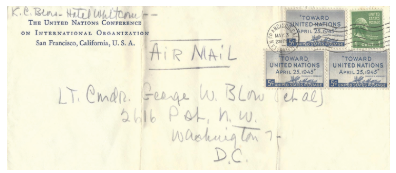 K.C. Blow - Hotel Whitcomb -
THE UNITED NATIONS CONFERENCE
ON INTERNATIONAL ORGANIZATION
San Francisco, California, U. S. A.
AIR MAIL
"TOWARD
UNITED NATIONS
APRIL 25, 1945"
"TOWARD
UNITED NATIONS
APRIL 25, 1945"
"TOWARD
UNITED NATIONS
APRIL 25, 1945"
Lt. Cmdr. George W. Blow (et al)
2616 P St. N. W.
Washington 7-
D.C.